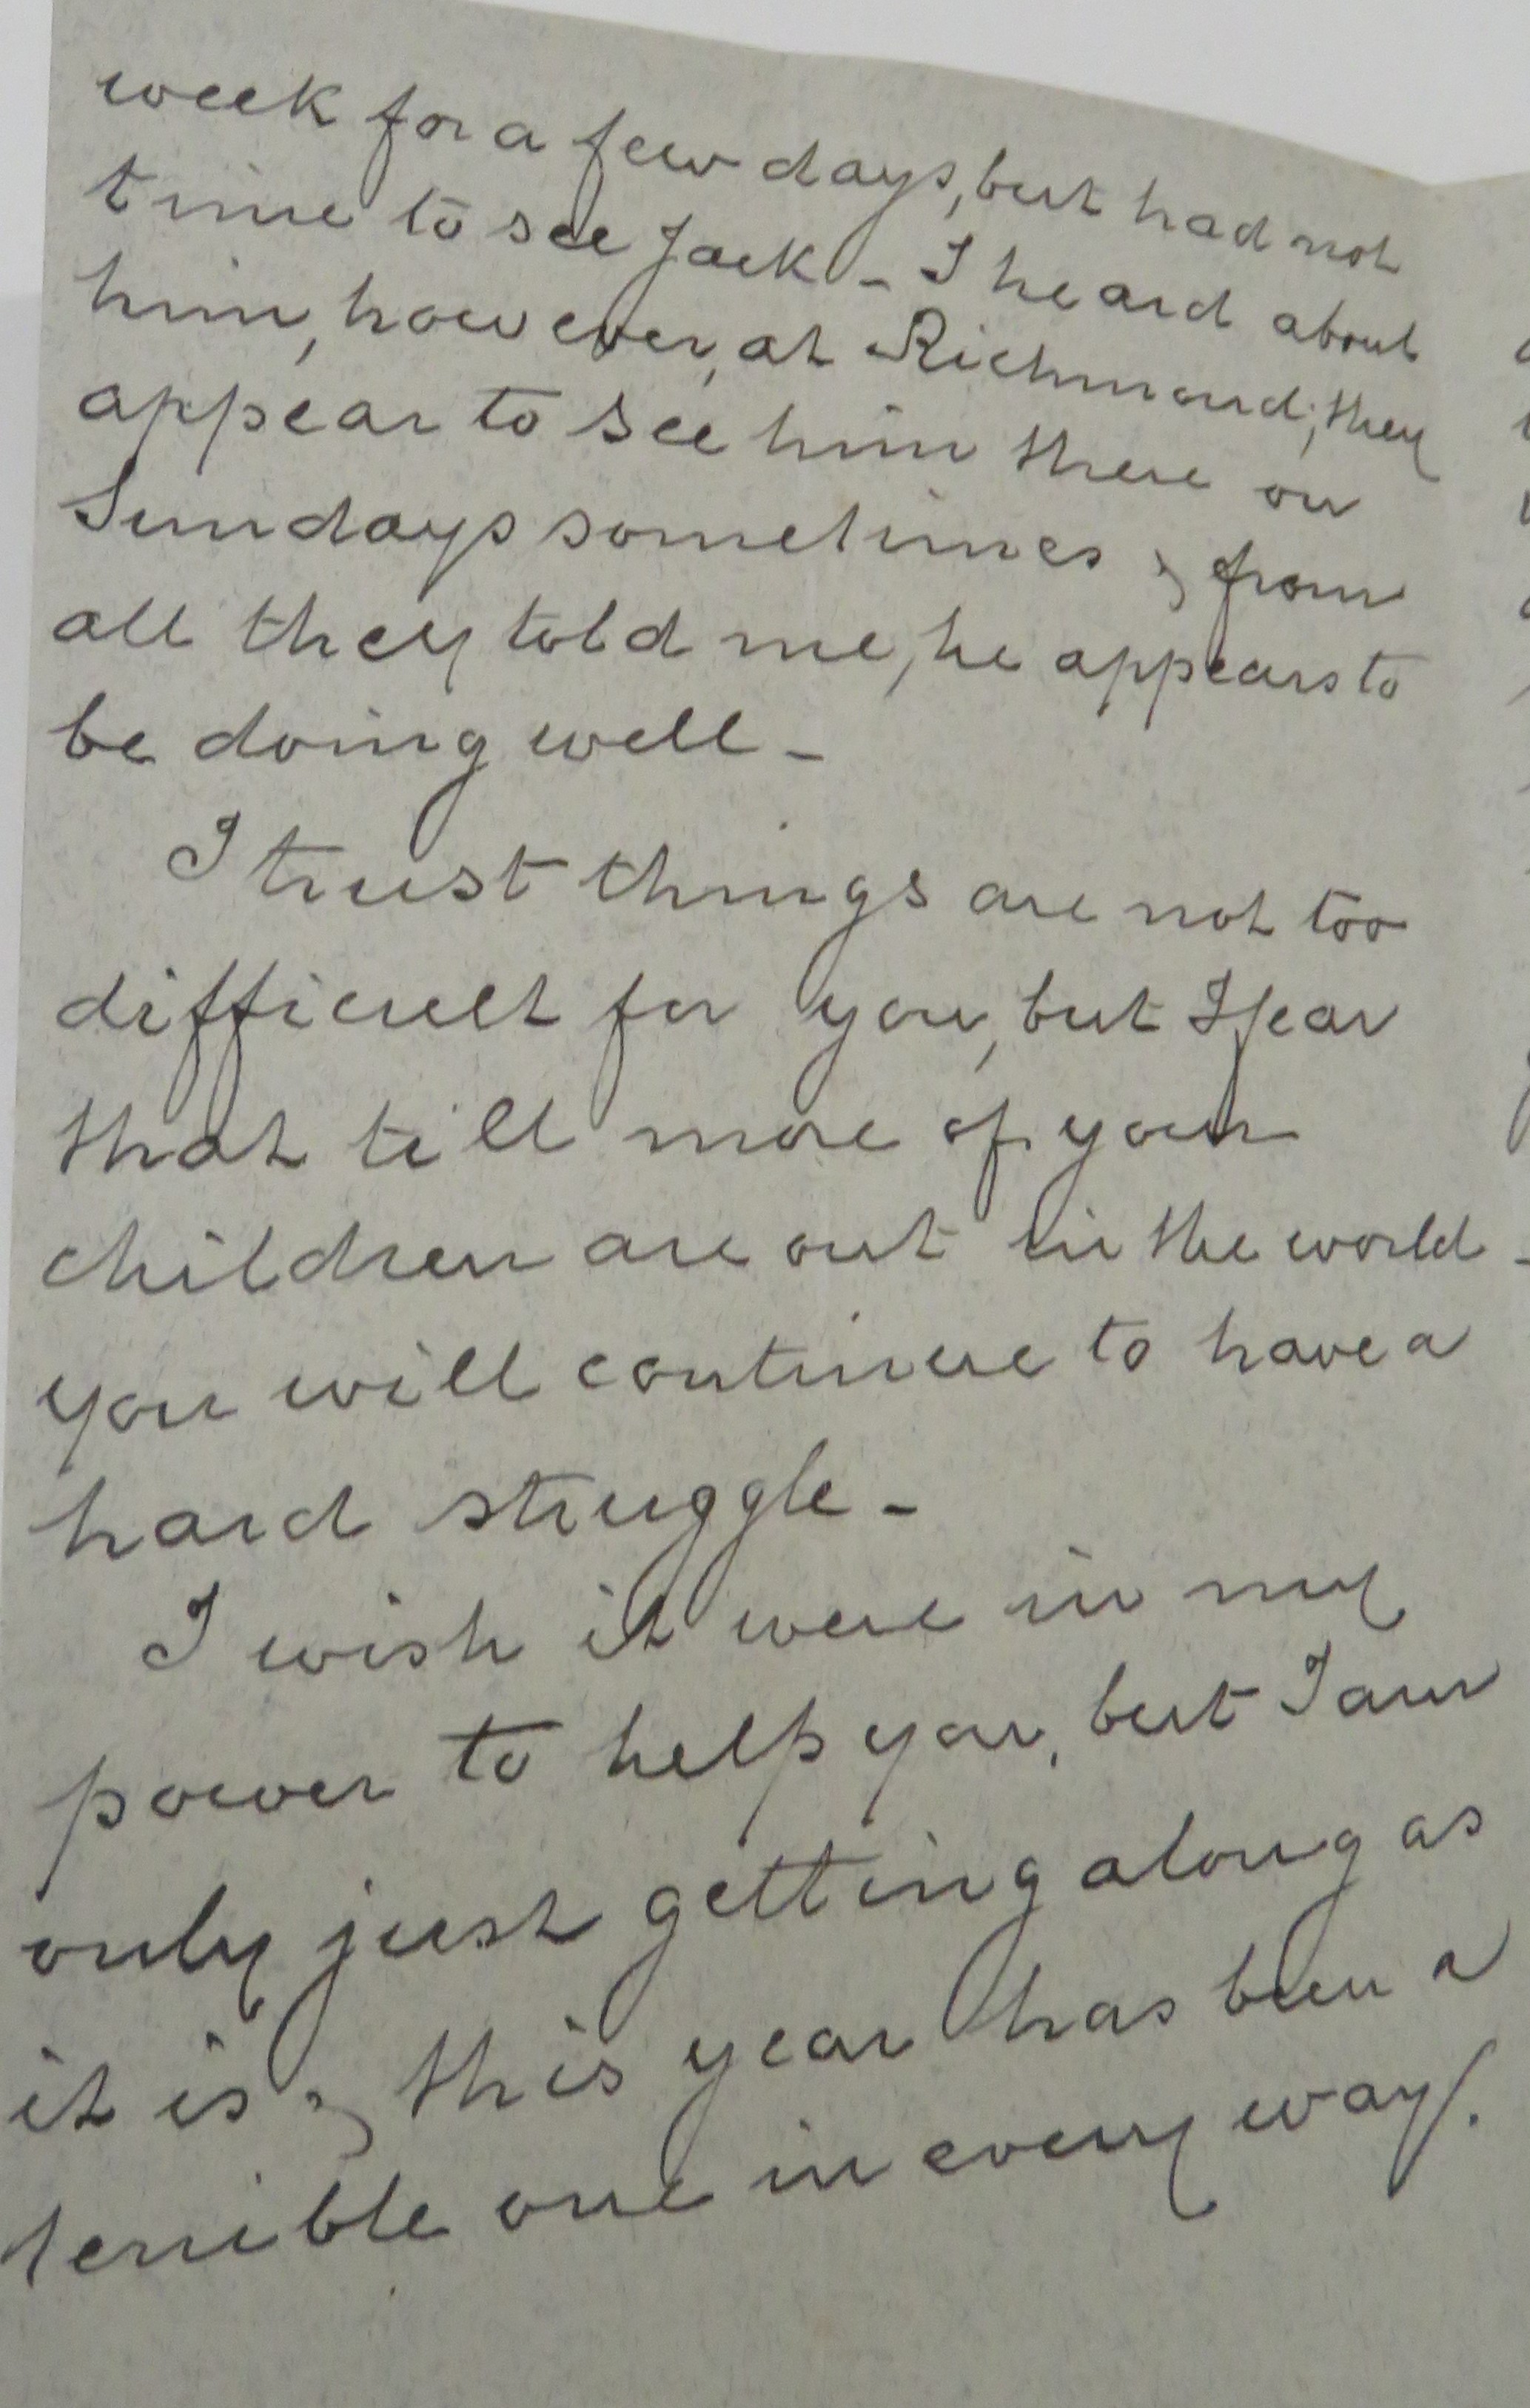 week for a few days, but had not
time to see Jack - I heard about
him, however, at Richmond; they
appear to see him there on
Sundays sometimes & from
all they told me, he appears to
be doing well -
I trust things are not too
difficult for you, but I fear
that till more of your
children are out in the world -
you will continue to have a
hard struggle -
I wish it were in my
power to help you, but I am
only just getting along as
it is, & this year has been a
terrible one in every way.